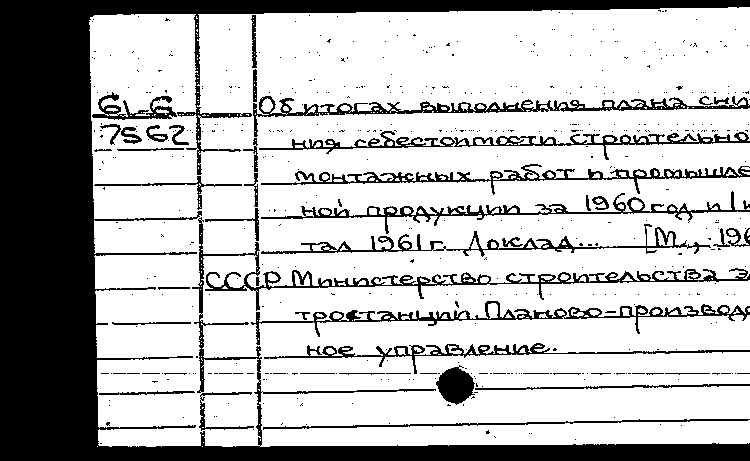 61-6 Об итогах выполнения плана сни
7562 ния себестоимости строительно
монтажных работ и промышле
ной продукции за 1960 год и I к
тал 1961 г. Доклад... [М., 196
СССР Министерство строительства э
тростанций. Планово-производс
ное управление.